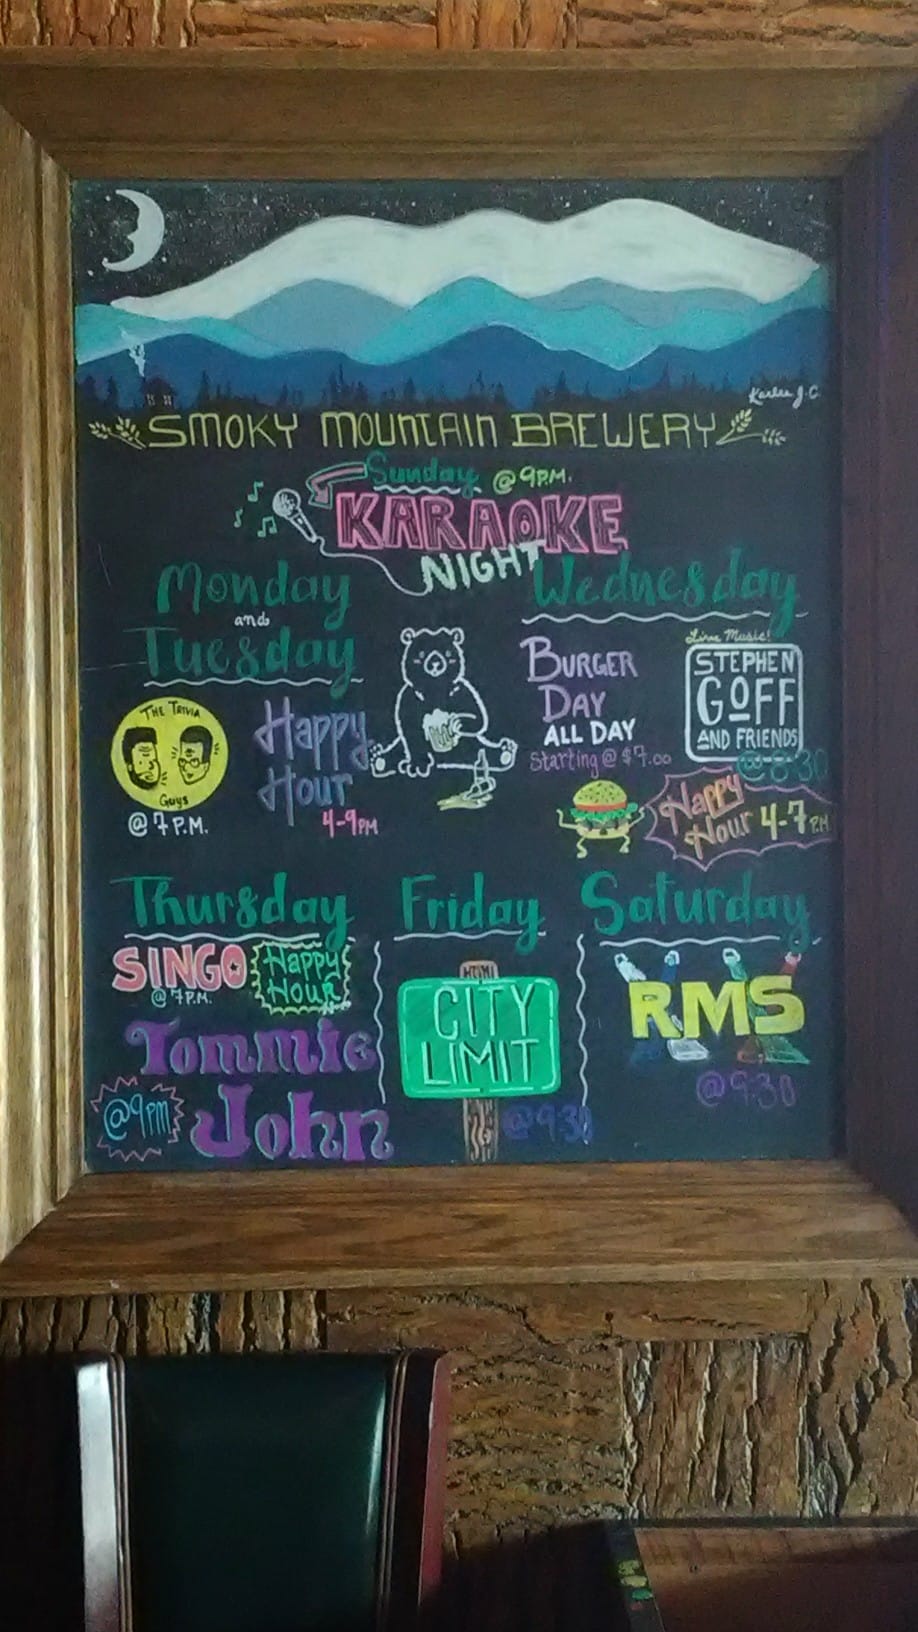 Karlee J.C.
SMOKY MOUNTAIN BREWERY
Sunday @ 9 P.M.
KARAOKE
NIGHT
Monday
and
Tuesday
THE TRIVIA
Guys
@ 7 P.M.
Happy
Hour
4-9PM
Wednesday
BURGER
DAY
ALL DAY
Starting @ $7.00
Live Music!
STEPHEN
GOFF
AND FRIENDS
@ 8:30
Happy
Hour 4-7 P.M
Thursday
SINGO
@ 7 P.M.
Happy
Hour
Tommie
John
@9pm
Friday
CITY
LIMIT
@ 9:30
Saturday
RMS
@ 9:30